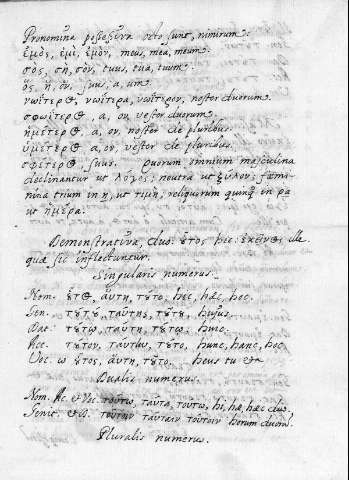 Pronomina possessiva octo sunt, nimirum.
ἐμὸς, ἐμὴ, ἐμὸν, meus, mea, meum.
σὸς, σὴ, σὸν, tuus, tua, tuum.
ὃς, ἣ, ὃν, suus, a, um
νωΐτερος, νωϊτέρα, νωΐτερον, noster duorum.
σφωΐτερος, α, ον vester duorum.
ἡμέτερος, α, ον, noster de pluribus.
ὑμέτερος, α, ον, vester de pluribus.
σφέτερος, suus. quorum omnium masculina
declinantur ut λόγος; neutra ut ξύλον; fœmi-
nina trium in η, ut τιμή, reliquorum quinque in ρα
ut ἡμέρα.
Demonstrativa, duo: οὗτος hic: ἐκεῖνος ille
quæ sic inflectuntur.
Singularis numerus.
Nom. οὗτος, αὕτη, τοῦτο, hic, hæc, hoc.
Gen. τούτου, ταύτης, τούτου, hujus.
Dat. τούτῳ, ταύτῃ, τούτῳ, huic.
Acc. τοῦτον, ταύτην, τοῦτο, hunc, hanc, hoc.
Voc. ὦ οὗτος, αὕτη, τοῦτο. heus tu
Dualis numerus.
Nom. Ac. & Voc. τούτω, ταύτα, τούτω, hi, hæ, hæc duo.
Genit. & D. τούτοιν ταύταιν τούτοιν horum duorum.
Pluralis numerus.